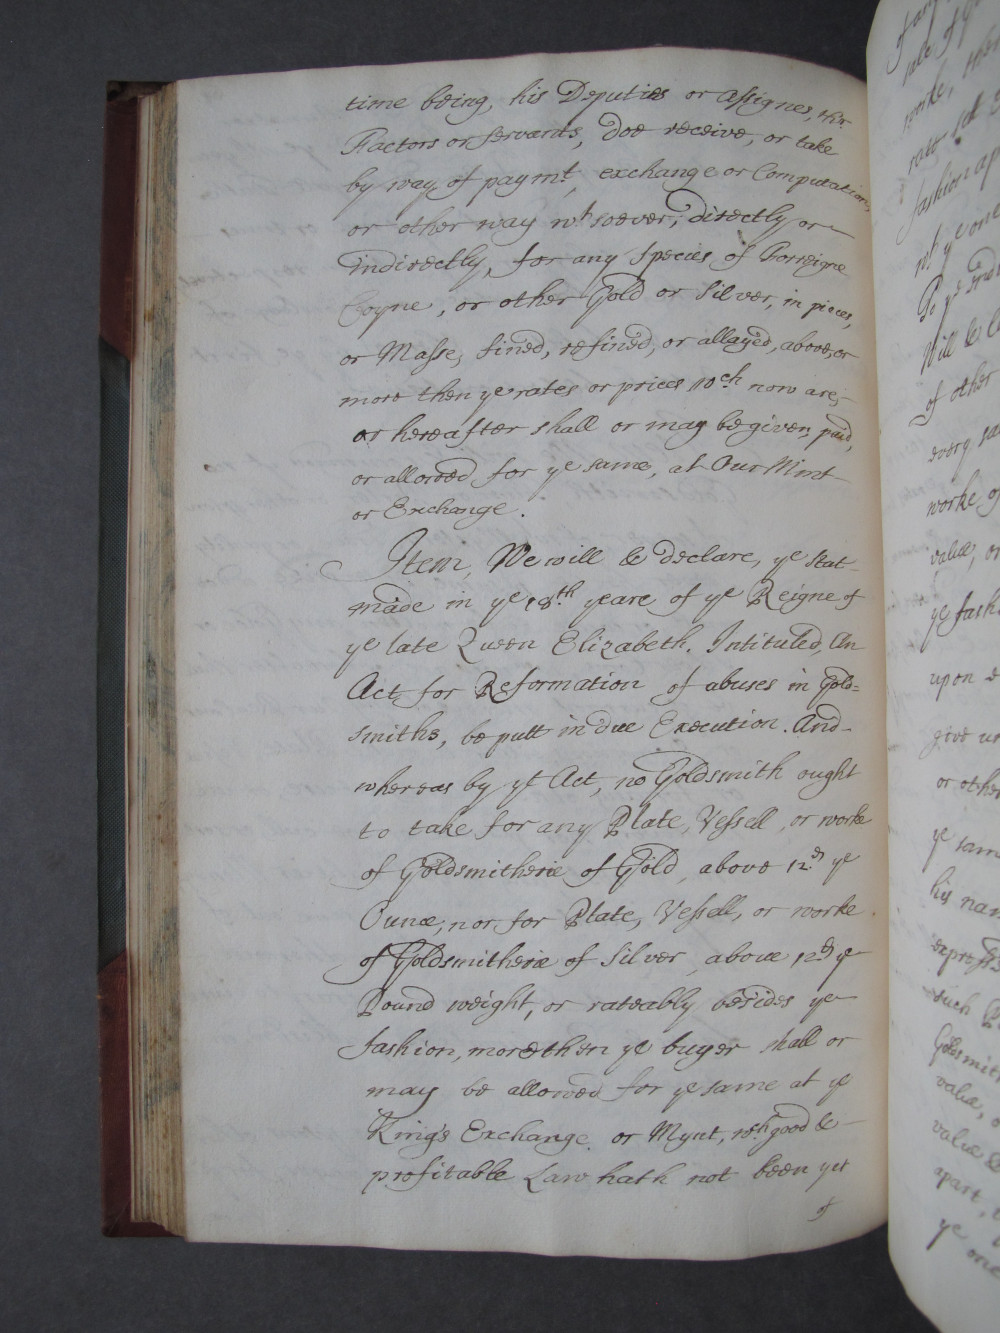 time being, his Deputies or Assignes, their
Factors or Servants, doe receive, or take
by way of paymt, exchange or Computation,
or other way wtsoever, directly or
indirectly, for any Species of Forreigne
Coyne, or other Gold or Silver, in pieces,
or Masse, fined, refined, or allayed, above, or
more then ye rates or prices wch now are,
or hereafter shall or may be given, paid,
or allowed for ye same, at Our Mint
or Exchange.
Item, We will & declare, ye Stat-
made in ye 18th yeare of ye Reigne of
ye late Queen Elizabeth. Intituled, An
Act for Reformation of abuses in Gold=
smiths, be putt in due Execution. And
whereas by yt Act, no Goldsmith ought
to take for any Plate, Vessell, or worke
of Goldsmitherie of Gold, above 12d ye
Ounce, nor for Plate, Vessell, or worke
of Goldsmitherie of Silver, above 12d ye
Pound weight, or rateably besides ye
fashion, more then ye buyer shall or
may be allowed for ye same at ye
King's Exchange or Mynt, wch good &
profitable Law hath not been yet
of
of any
sale of
worke, the
rate set
fashion ap
wt ye one
Will & C
of other
every sa
worke of
value, or
ye fash
upon
give un
or other
ye same
his nam
expresse
such P
Goldsmith
value, o
value &
apart,
ye one